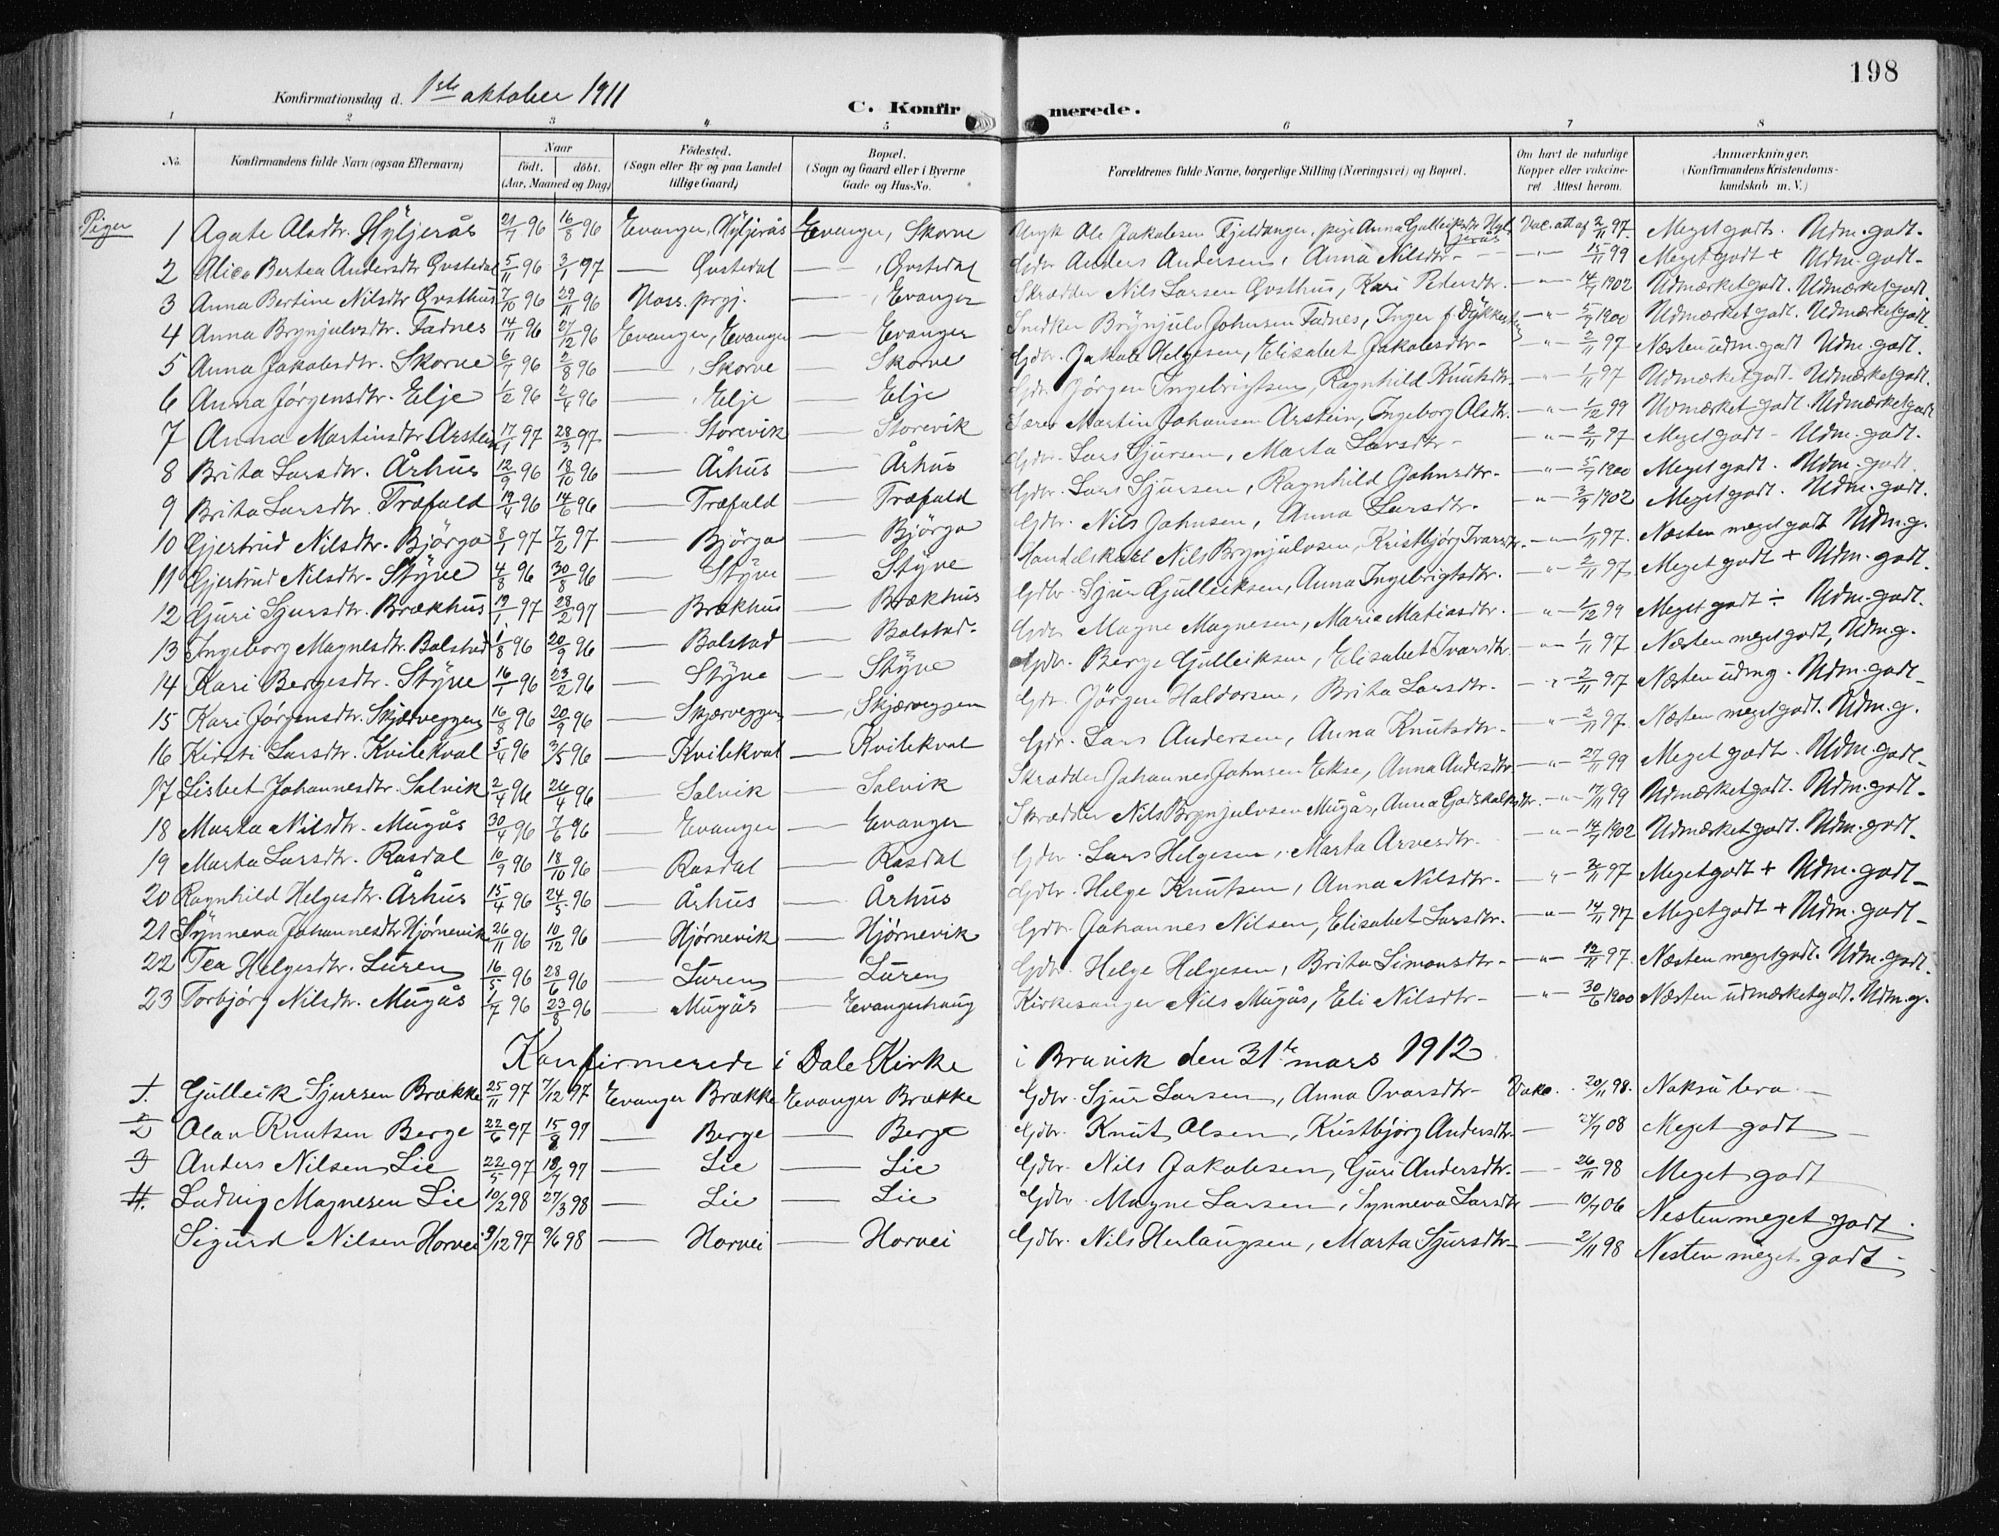 198
Konfirmationsdag d. 1ste oktober 1911
C. Konfirmerede.
1 2 3 4 5 6 7 8
No. Konfirmandens fulde Navn (ogsaa Efternavn) Naar født. døbt. (Aar, Maaned og Dag) Fødested. (Sogn eller By og paa Landet tillige Gaard) Bopæl. (Sogn og Gaard eller i Byerne Gade og Hus-No.) Forældrenes fulde Navne, borgerlige Stilling (Næringsvei) og Bopæl. Om havt de naturlige Kopper eller vakcineret Attest herom. Anmærkninger. (Konfirmandens Kristendomskundskab m. V.)
Piger
1 Agate Olsdtr. Hÿljerås 21/7 96 16/8 96 Evanger, Hÿljerås Evanger, Skorve Ungk Ole Jakobsen Fjeldanger, pige Anna Gulleiksdtr Hyljerås Vac. att af 2/11 97 Meget godt. Udm. godt.
2 Alice Bertea Andersdtr Øvstedal 5/11 96 3/1 97 — Øvstedal — , Øvstedal Gdbr Anders Andersen, Anna Nilsdtr - — " — 15/11 99 Meget godt + Udm. godt.
3 Anna Bertine Nilsdtr Øvsthus 7/10 96 29/11 96 Voss. prgj. — , Evanger Skrædder Nils Larsen Øvsthus, Kari Petersdtr. — " — 14/7 1902 Udmærket godt. Udmærket godt.
4 Anna Brynjulvsdtr. Fadnes 14/11 96 27/12 96 Evanger, Evanger — Evanger Snedker Brynjulv Johnsen Fadnes, Inger f. Dykkesten — " — 5/7 1900 Udmærket godt. Udmærket godt.
5 Anna Jakobsdtr. Skorve 6/7 96 2/8 96 — , Skorve — Skorve Gdbr. Jakob Helgesen, Elisabet Jakobsdtr - — " — 2/11 97 Næsten udm. godt Udm. godt.
6 Anna Jørgensdtr. Elje 1/2 96 2/4 96 — , Elje — Elje Gdr. Jörgen Ingebrigtsen, Ragnhild Knutsdtr. — " — 1/11 97 Udmærket godt. Udmærket godt.
7 Anna Martinsdtr Arstein 17/1 97 28/3 97 — Storevik — Storevik Lærer Martin Johansen Arstein, Ingeborg Olsdtr. — " — 1/12 99 Udmærket godt. Udmærket godt
8 Brita Larsdtr. Århus 12/9 96 18/10 96 — Århus — Århus Gdbr. Lars Sjursen, Marta Larsdtr - — " — 2/11 97 Meget godt - Udm. godt.
9 Brita Larsdtr. Træfald 19/4 96 14/6 96 — Træfald — Træfald Gdbr. Lars Sjursen, Ragnhild Johnsdtr. — " — 5/7 1900 Meget godt. Udm. godt.
10 Gjertrud Nilsdtr. Björgo 8/1 97 7/2 97 — Björgo — Björgo Gdbr. Nils Johnsen, Anna Larsdtr. — " — 3/9 1902 Meget godt. Udm. godt.
11 Gjertrud Nilsdtr. Stÿve 4/8 96 30/8 96 — Stÿve — Stÿve Handelskarl Nils Brynjulvsen, Kristbjørg Ivarsdtr. — " — 1/11 97. Næsten meget godt Udm. g.
12 Guri Sjursdtr. Brækhus 19/1 97 28/2 97 — Brækhus — Brækhus Gdbr. Sjur Gulleiksen, Anna Ingebrigtsdtr. — " — 2/11 97 Meget godt + Udm. godt.
13 Ingeborg Magnesdtr. Bolstad 1/8 96 20/9 96 — Bolstad — Bolstad. Gdbr Magne Magnesen, Marie Matiasdtr. " — 1/12 99 Meget godt ÷ Udm. godt.
14 Kari Bergesdtr. Stÿve 16/1 96 23/2 96 — Stÿve — Stÿve Gdbr. Berge Gulleiksen, Elisabet Ivarsdtr. — " — 1/11 97 Næsten meget godt, Udm. g.
15 Kari Jørgensdtr. Skjærveggen 16/8 96 20/9 96 — Skjærveggen — , Skjærveggen Gdr. Jörgen Haldorsen, Brita Larsdtr. — " — 2/11 97 Næsten udm g. Udm. godt.
16 Kirsti Larsdtr. Kvilekval 5/4 96 3/5 96 — Kvilekval — Kvilekval Gdr. Lars Andersen, Anna Knutsdtr. — " — 2/7 97 Næsten meget godt. Udm. g.
17 Lisbet Johannesdtr. Salvik 2/4 96 26/4 96 — Salvik — Salvik Skrædder Johannes Johnsen Ekse, Anna Andersdtr — " — 27/11 99 Meget godt. Udm. godt.
18 Marta Nilsdtr. Mugås 30/4 96 7/6 96 — Evanger — Evanger Skrædder Nils Brynjulvsen Mugås, Anna Godskalksdtr. — " — 17/11 99 Udmærket godt. Udm. godt.
19 Marta Larsdtr. Rasdal 10/9 96 18/10 96 — Rasdal — Rasdal Gdbr. Lars Helgesen, Marta Arvesdtr. — " — 14/7 1902 Udmærket godt. Udm. godt.
20 Ragnhild Helgesdtr. Århus 15/4 96 24/5 96 — Århus — Århus Gdbr. Helge Knutsen, Anna Nilsdtr. — " — 2/11 97 Meget godt + Udm. godt.
21 Synneva Johannesdtr Hjørnevik 26/11 96 10/12 96 — Hjørnevik — Hjørnevik Gdbr. Johannes Nilsen, Elisabet Larsdtr. — " — 14/11 97 Meget godt + Udm. godt.
22 Tea Helgesdtr. Luren 16/5 96 28/6 96 — Luren — Luren Gdbr. Helge Helgesen, Brita Simonsdtr. — " — 12/11 97. Næsten meget godt. Udm. godt.
23 Torbjørg Nilsdtr. Mugås 1/7 96 23/8 96 — Mugås — Evangerhaug Kirkesanger Nils Mugås, Eli Nilsdtr - — " — 30/6 1900 Næsten udmærket godt. Udm. g.
Konfirmerede i Dale Kirke i Bruvik den 31te mars 1912
1. Gulleik Sjursen Brække 25/11 97 7/12 97 Evanger Brække Evanger Brække Gdbr. Sjur Larsen, Anna Ivarsdtr - Vakc. 20/11 98. Nokså bra -
2 Olav Knutsen Berge 22/6 97 15/8 97 — Berge — Berge Gdbr. Knut Olsen, Kristbjørg Andersdtr. — 24/7 08 Meget godt
3 Anders Nilsen Lie 22/5 97 18/7 97 — Lie — Lie Gdbr. Nils Jakobsen, Guri Andersdtr. — 26/11 98 Meget godt
4. Ludvig Magnesen Lie 10/2 98 27/3 98 — Lie — Lie Gdbr. Magne Larsen, Synneva Larsdtr — 10/7 06 Nesten meget godt.
Sigurd Nilsen Horvei 9/12 97 9/6 98 — Horvei — Horvei Gdbr. Nils Herlaugsen, Marta Sjursdtr — 2/11 98 Nesten meget godt -